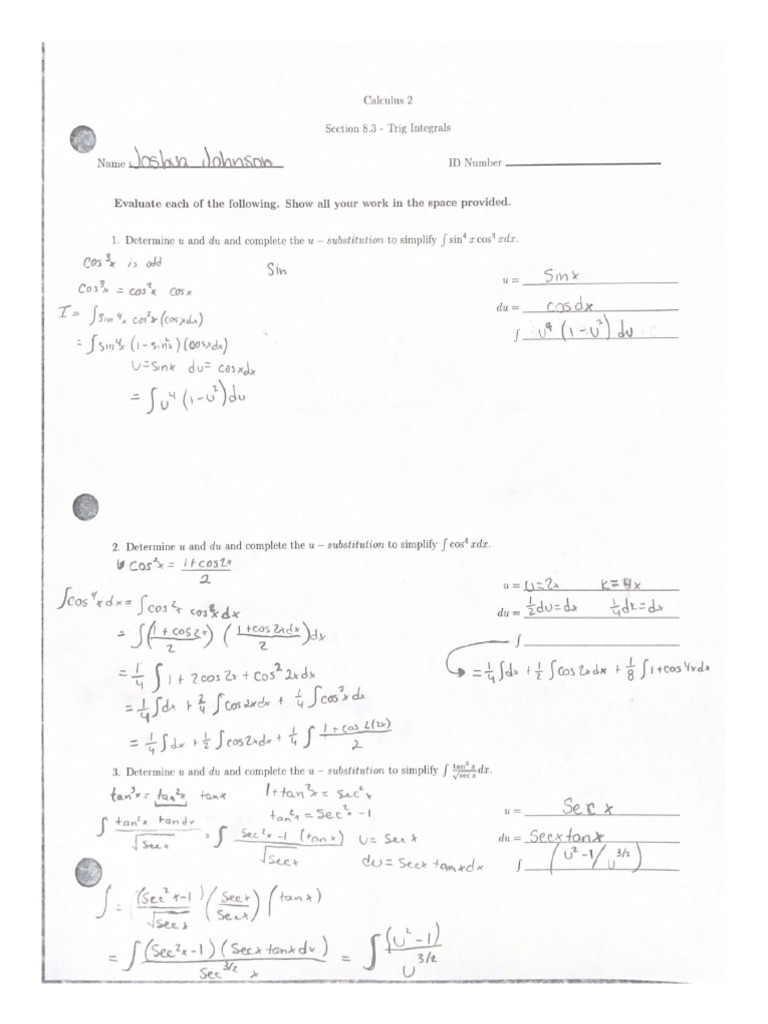 Calculus 2
Section 8.3 - Trig Integrals
Name : Joshua Johnson ID Number
Evaluate each of the following. Show all your work in the space provided.
1. Determine u and du and complete the u − substitution to simplify ∫ sin⁴ x cos³ xdx.
cos³x is odd Sin
u = Sinx
cos³x = cos²x cosx
du = cosdx
I = ∫sin⁴x cos²x (cosxdx)
∫ u⁴ (1-u²) du
= ∫sin⁴x (1-sin²x) (cosxdx)
u=sinx du= cosxdx
= ∫u⁴ (1-u²)du
2. Determine u and du and complete the u − substitution to simplify ∫ cos⁴ xdx.
cos²x = 1+cos2x/2
u = u=2x k=4x
∫cos⁴xdx = ∫cos²x cos²xdx
du = ½du=dx ¼dk=dx
= ∫(1+cos2x/2) (1+cos2xdx/2)dx
∫
= ¼∫dx + ½∫cos2xdx + ⅛∫1+cos4xdx
= ¼ ∫ 1+2cos2x + cos² 2xdx
= ¼∫dx + 2/4 ∫cos2xdx + ¼ ∫cos²x dx
= ¼∫dx + ½∫cos2xdx + ¼ ∫ 1+cos2(2x)/2
3. Determine u and du and complete the u − substitution to simplify ∫ tan³ x/√sec x dx.
tan³x = tan²x tanx 1+tan²x = sec²x
tan²x = sec²x -1
u = Sec x
∫ tan²x tandx/√secx = ∫ sec²x-1 (tanx)/√secx u = secx
du = Secxtanx
du = secx tanxdx
∫ (u²-1/u^3/2)
∫ = (sec²x-1)/√secx (secx/secx) (tanx)
= ∫(sec²x-1)(secxtanxdx)/sec^3/2 x = ∫(u²-1)/u^3/2